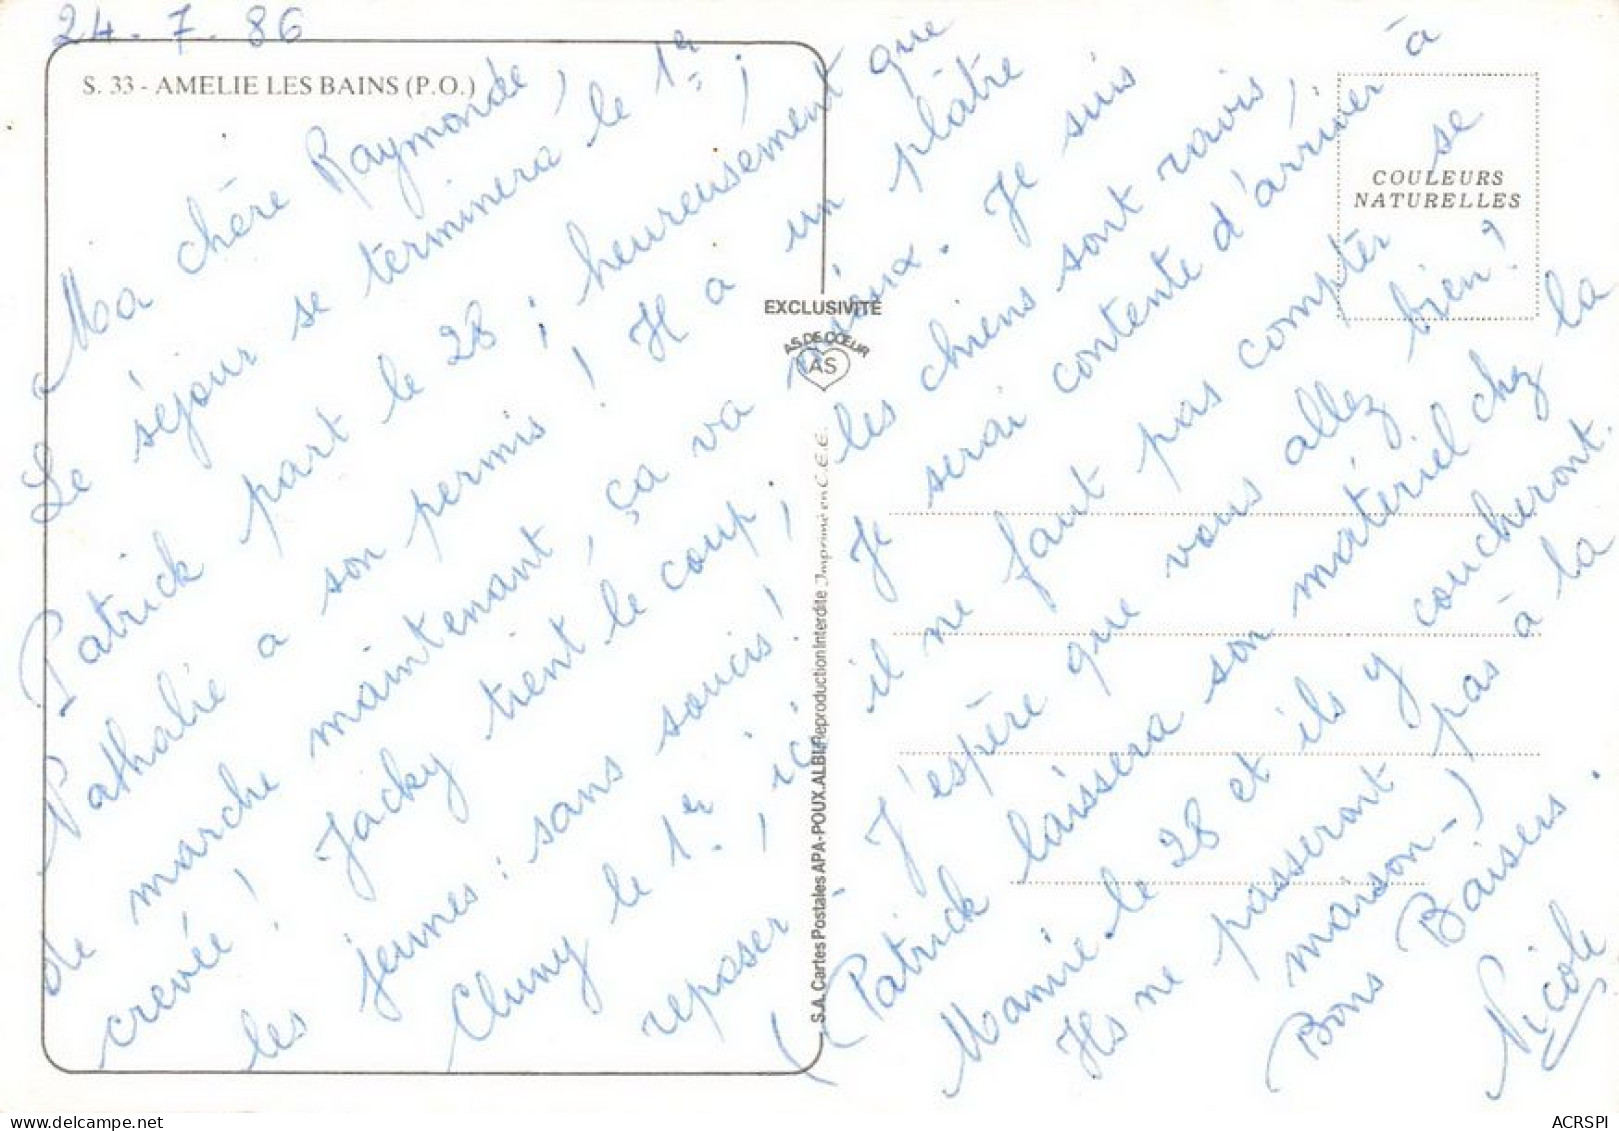 24. 7. 86
S. 33 - AMELIE LES BAINS (P.O.)
Ma chère Raymonde,
Le séjour se terminera le 1er ;
Patrick part le 28 ; heureusement que
Nathalie a son permis ! Il a un plâtre
de marche maintenant, ça va mieux. Je suis
crevée ! Jacky tient le coup ; les chiens sont ravis,
les jeunes : sans soucis ! Je serai contente d'arriver à
Cluny le 1er. ; ici il ne faut pas compter se
reposer. J'espère que vous allez bien ?
(Patrick laissera son matériel chez la
Mamie le 28 et ils y coucheront.
Ils ne passeront pas à la
maison -)
Bons Baisers.
Nicole
COULEURS
NATURELLES
EXCLUSIVITÉ
AS DE CŒUR
AS
S.A. Cartes Postales APA-POUX.ALBI. Reproduction Interdite Imprimé en C.E.E.
delcampe.net
ACRSPI